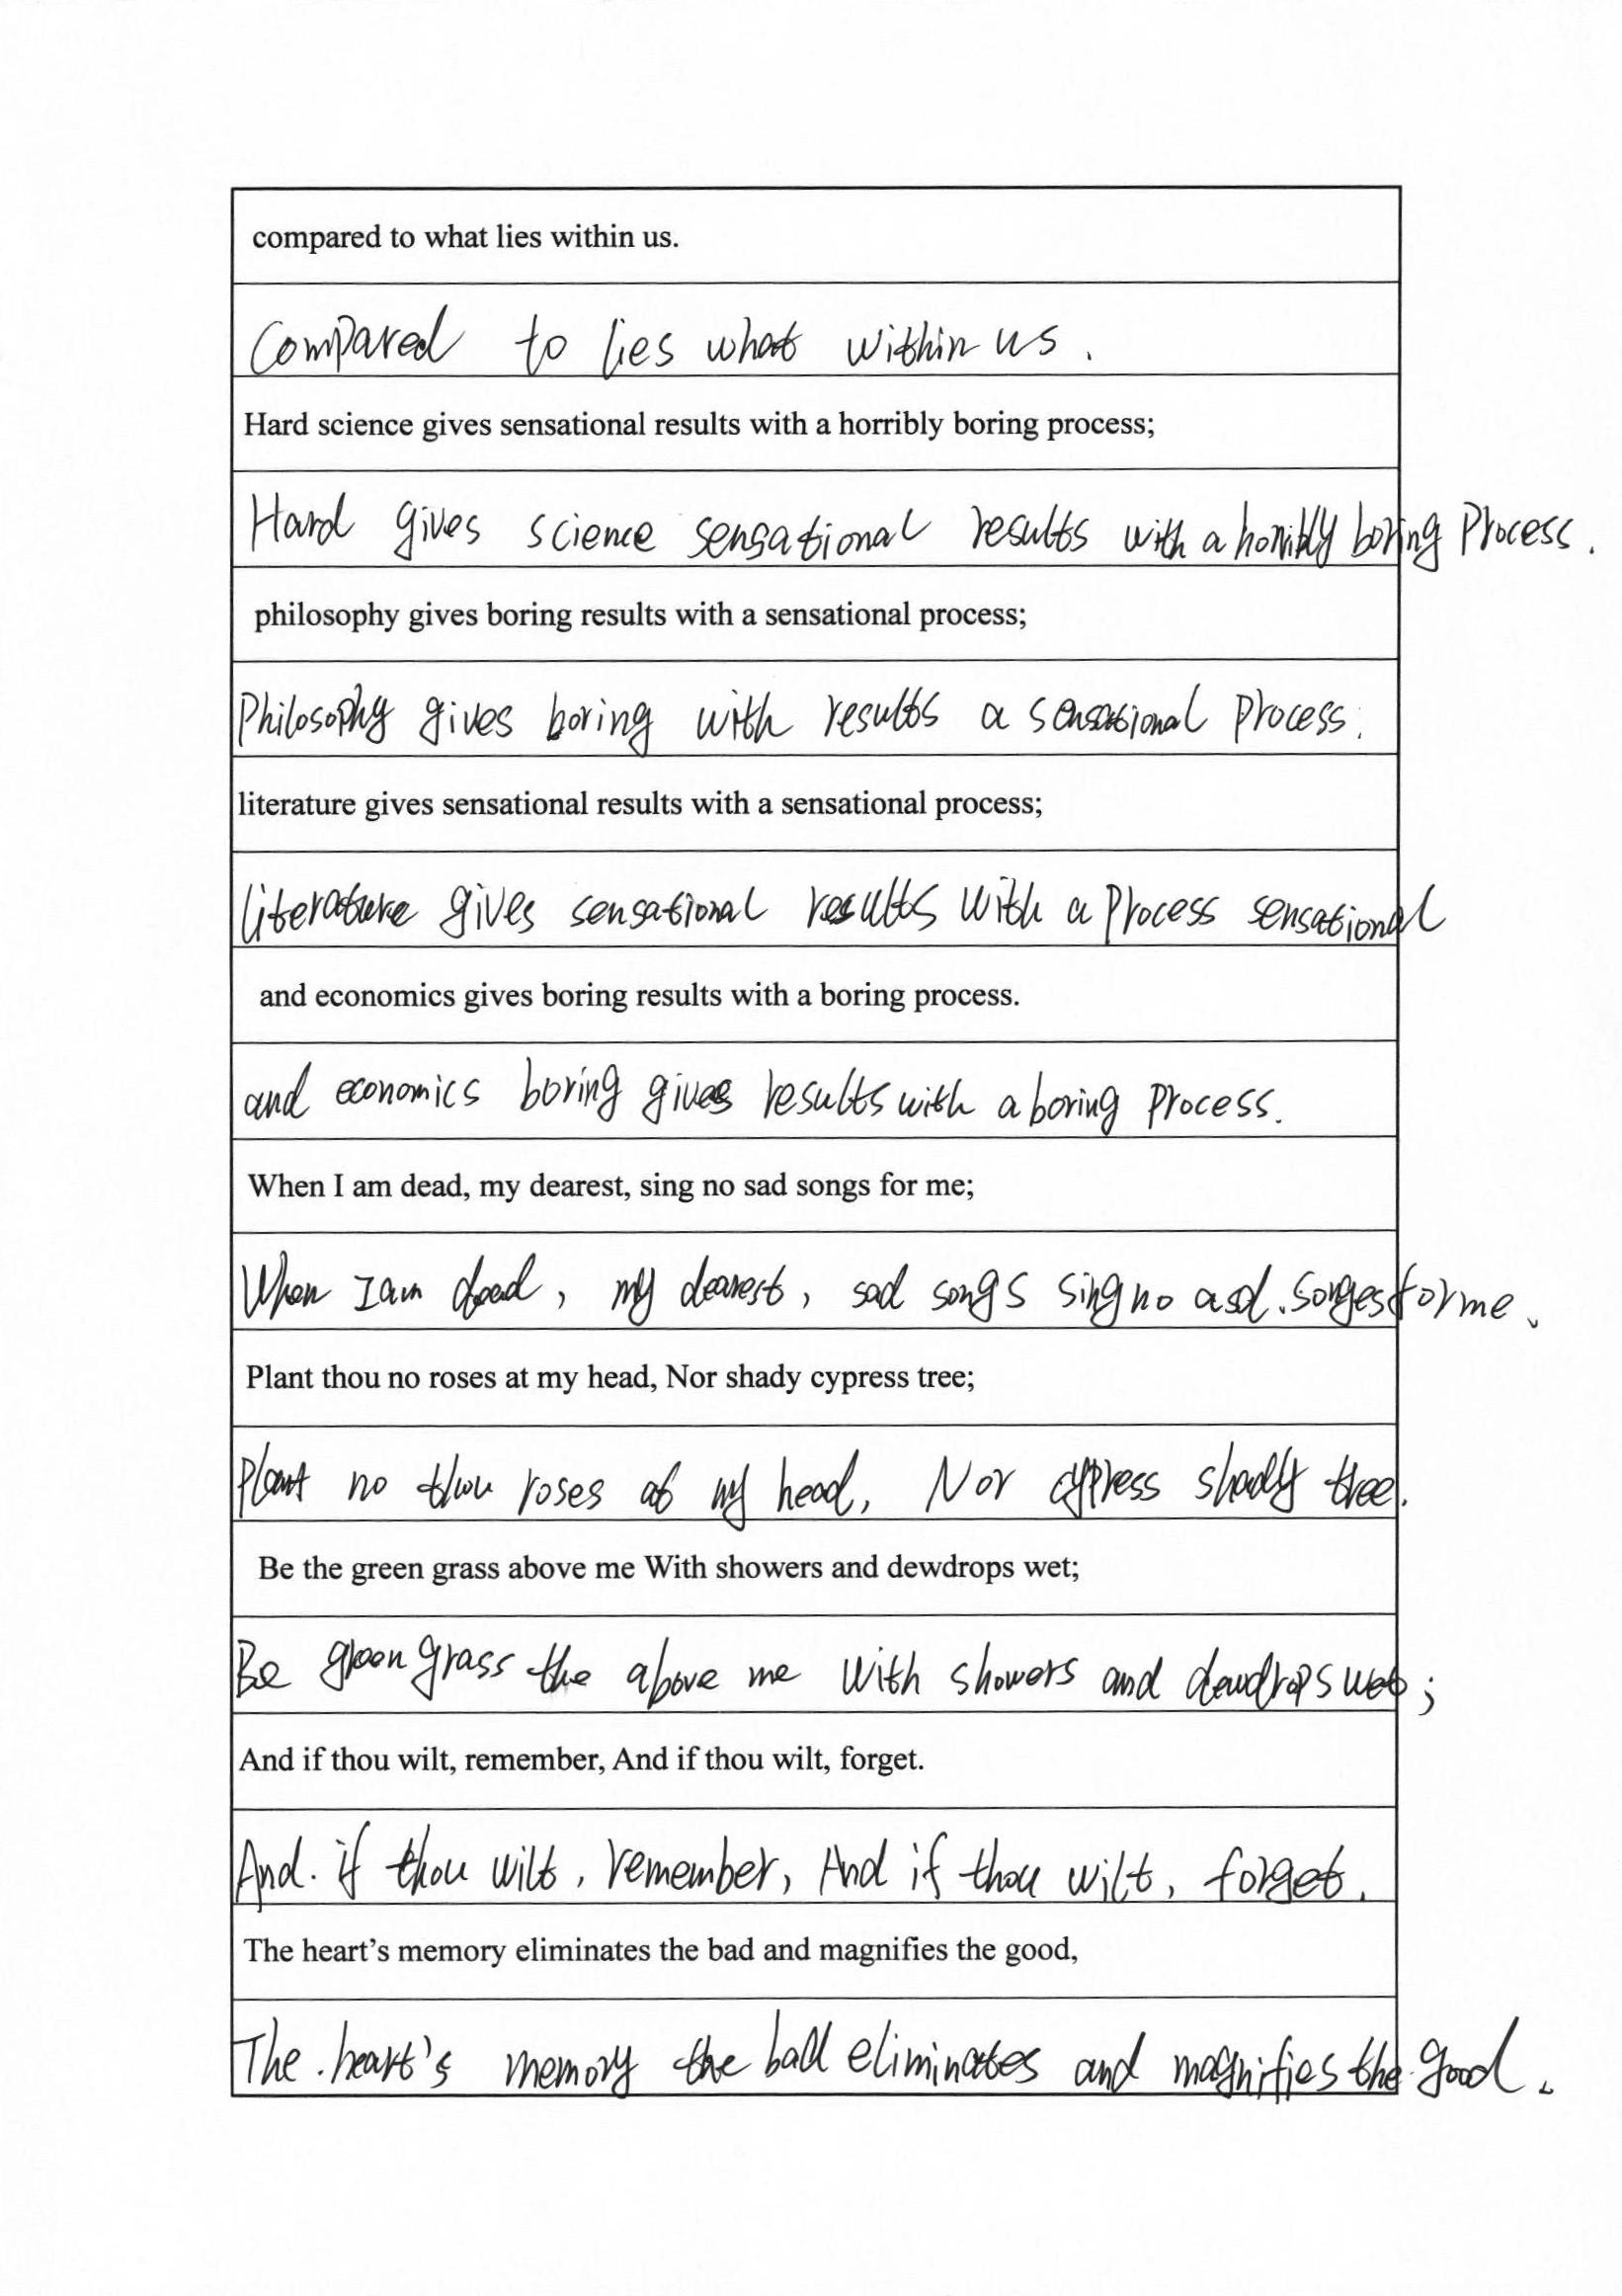 compared to what lies within us.
Compared to lies what within us.
Hard science gives sensational results with a horribly boring process;
Hard gives science sensational results with a horribly boring process.
philosophy gives boring results with a sensational process;
Philosophy gives boring with results a sensational process.
literature gives sensational results with a sensational process;
literature gives sensational results with a process sensational
and economics gives boring results with a boring process.
and economics boring gives results with a boring process.
When I am dead, my dearest, sing no sad songs for me;
When I am dead, my dearest, sad songs sing no asd. songes for me.
Plant thou no roses at my head, Nor shady cypress tree;
Plant no thou roses at my head, Nor cypress shady tree.
Be the green grass above me With showers and dewdrops wet;
Be green grass the above me with showers and dewdrops wet;
And if thou wilt, remember, And if thou wilt, forget.
And. if thou wilt, remember, And if thou wilt, forget.
The heart’s memory eliminates the bad and magnifies the good,
The. heart's memory the bad eliminates and magnifies the good.